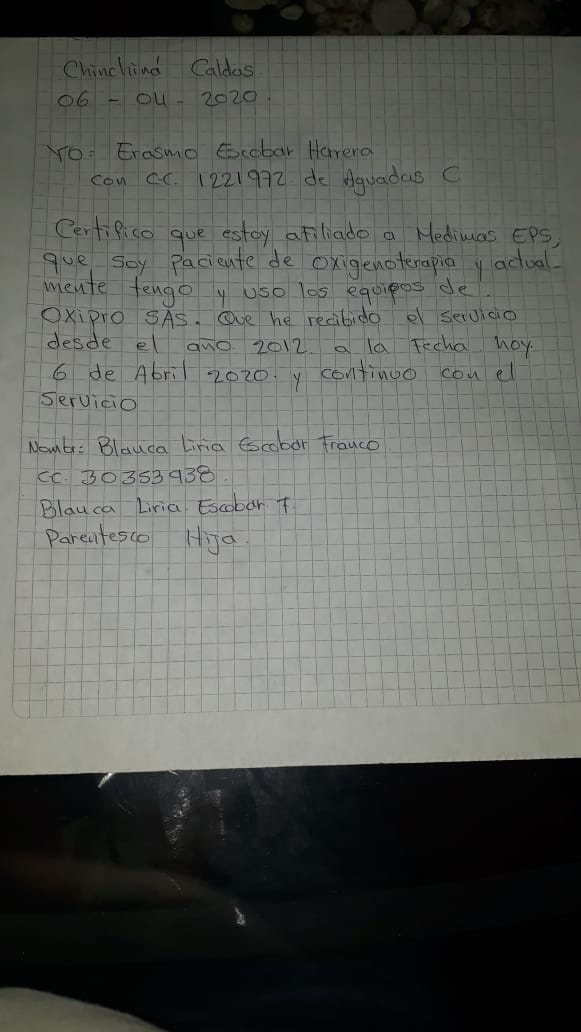 Chinchiná Caldas
06 - 04 - 2020.
YO: Erasmo Escobar Herrera
con C.C. 1221972. de Aguadas C
Certifico que estoy afiliado a Medimas EPS,
que soy paciente de oxigenoterapia y actual-
mente tengo y uso los equipos de.
OXIPRO SAS. Que he recibido el servicio
desde el año 2012. a la Fecha hoy.
6 de Abril 2020. y continuo con el
Servicio
Nombr: Blauca Liria Escobar Franco
CC. 30353938.
Blauca Liria Escobar F.
Parentesco Hija.